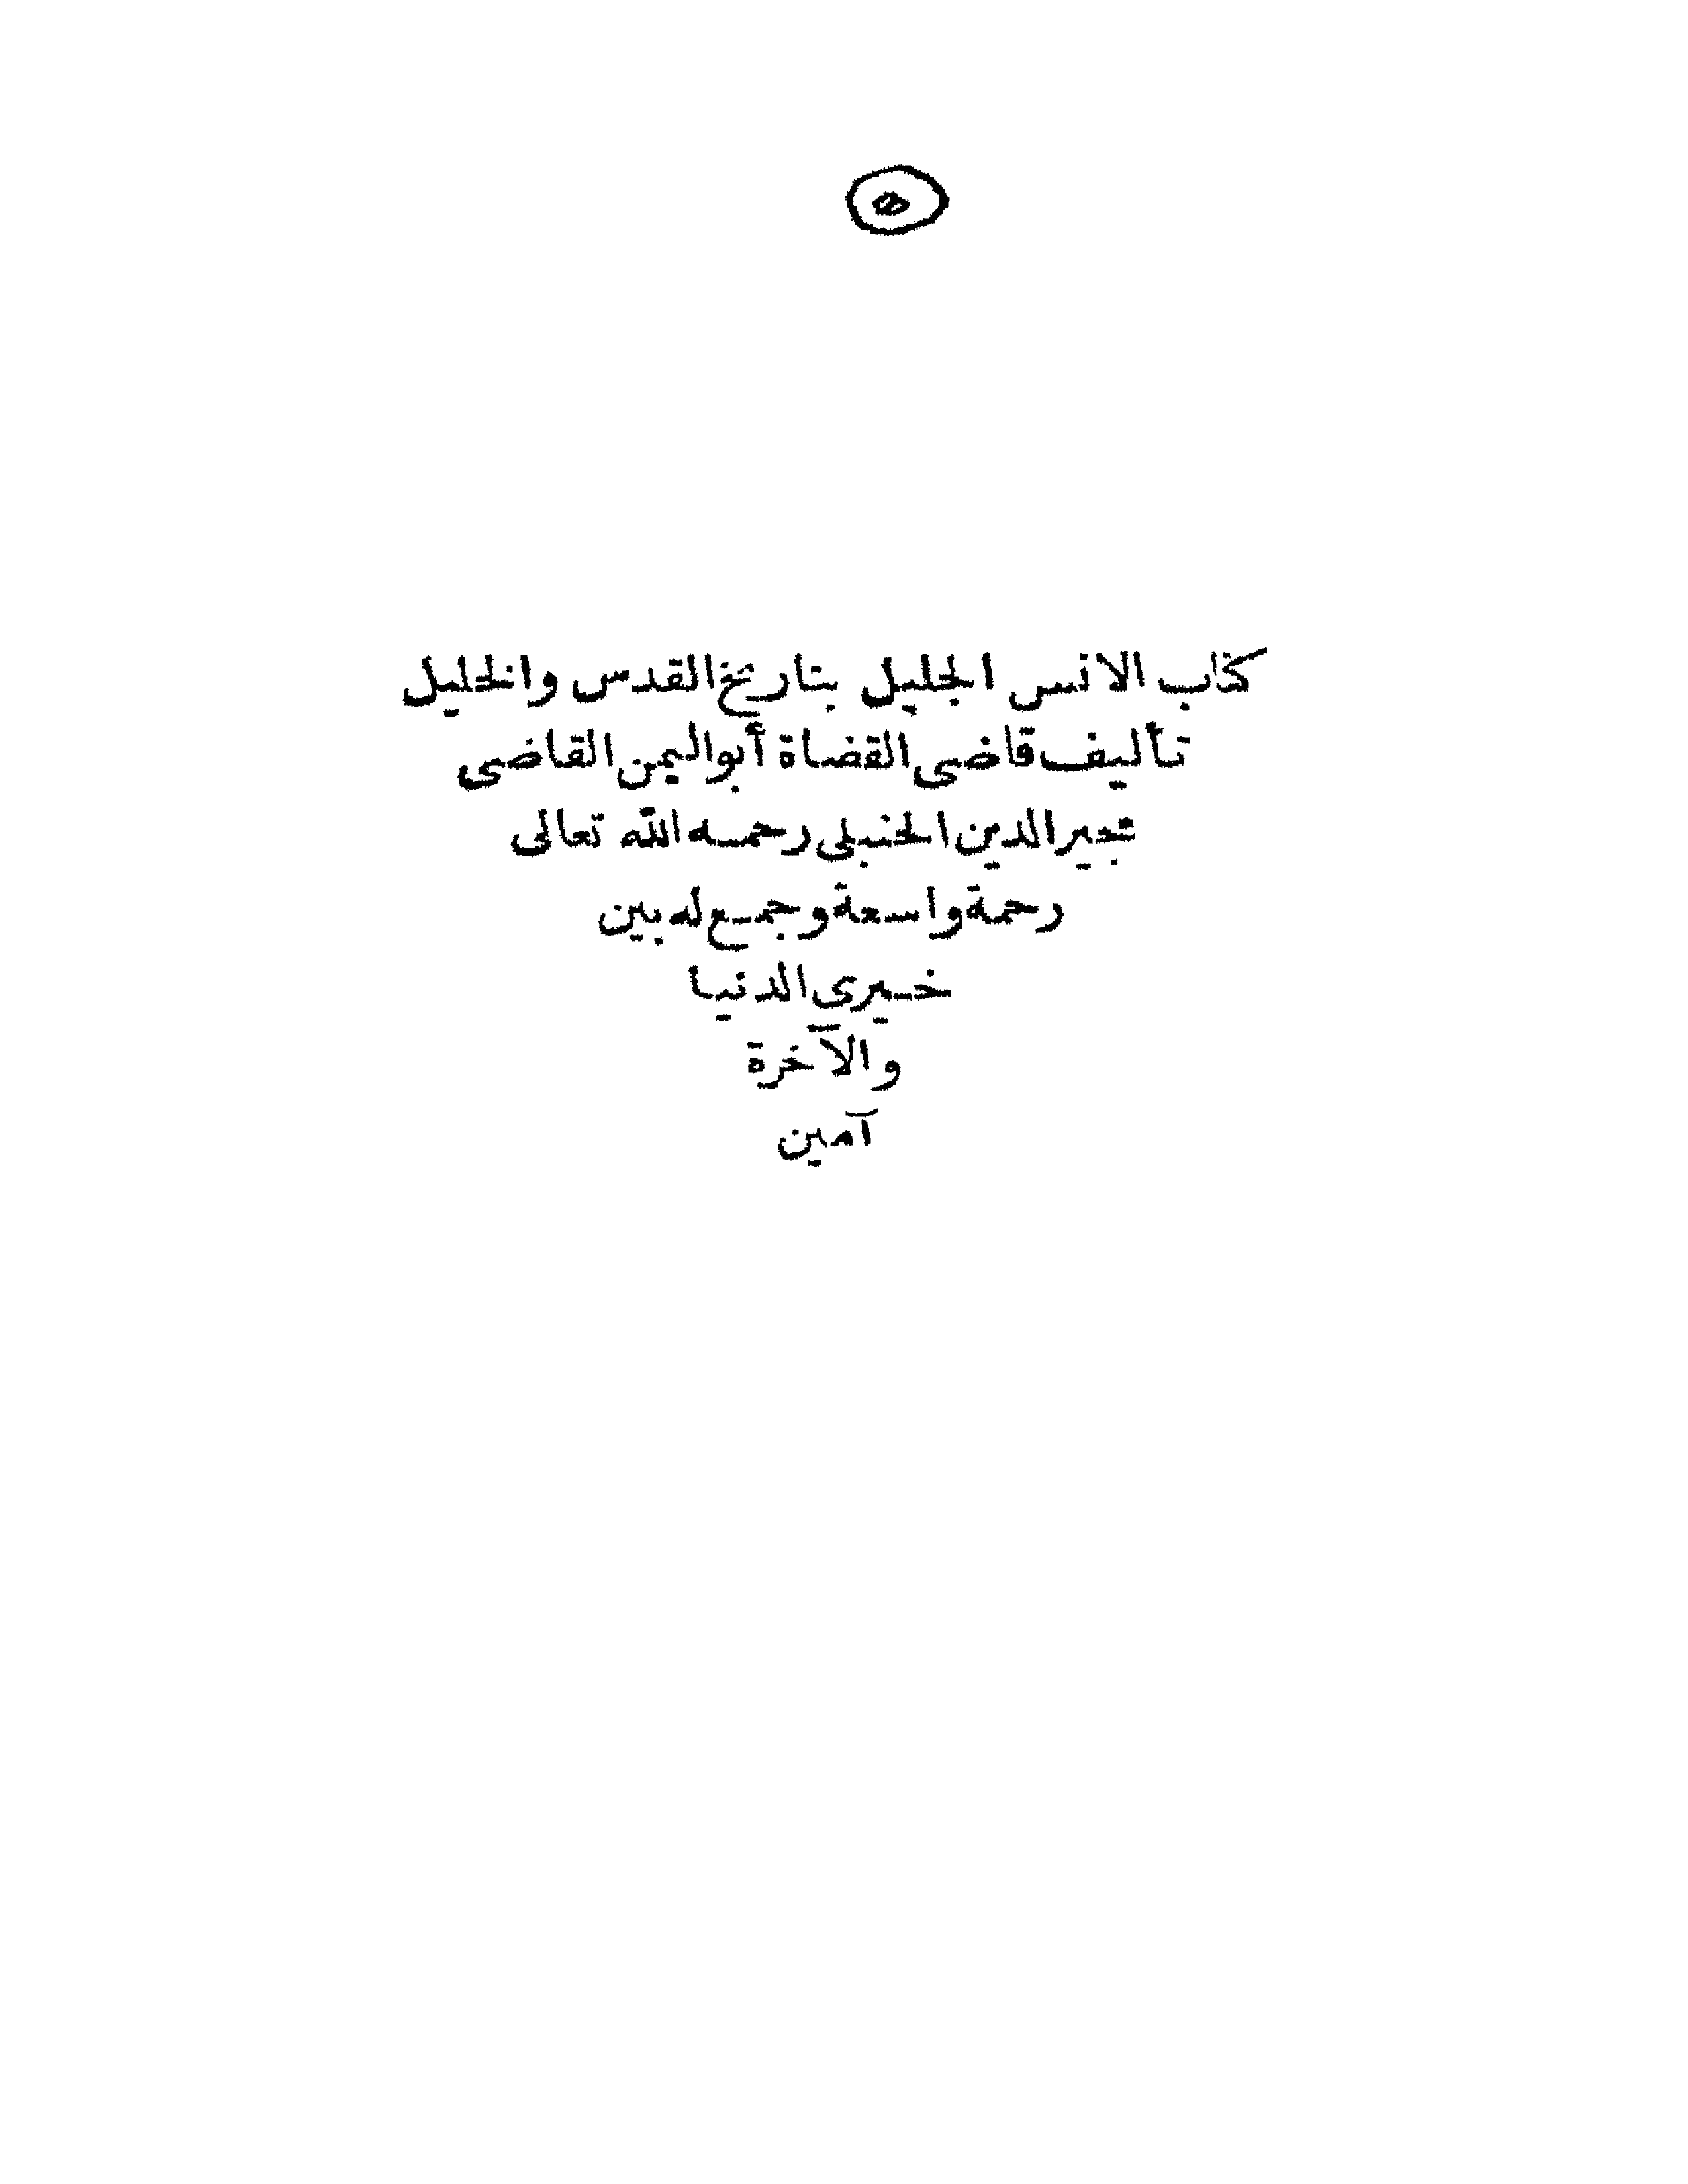 كتاب الانس الجليل بتاريخ القدس والخليل
تأليف قاضى القضاة أبو اليمن القاضى
مجير الدين الحنبلى رحمه الله تعالى
رحمة واسعة وجمع له بين
خيرى الدنيا
والآخرة
آمين